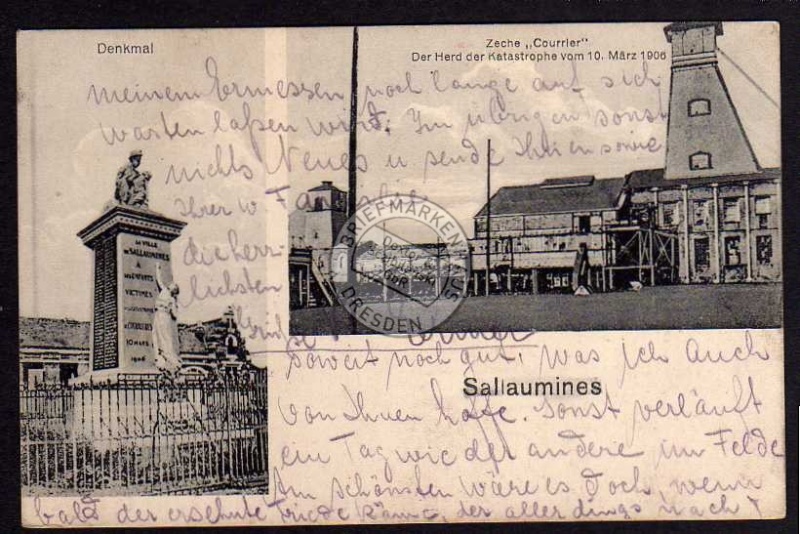 Denkmal
Zeche „Courrier"
Der Herd der Katastrophe vom 10. März 1906
meinem Ermessen noch lange auf sich
warten laßen wird. Im übrigen sonst
nichts Neues u sende Ihnen sowie
Ihrer w Familie
die herz-
lichsten
Grüße
LA VILLE
DE SALLAUMINES
A
SES ENFANTS
VICTIMES
10 MARS
1906
BRIEFMARKEN
DRESDEN
soweit noch gut, was ich auch
Sallaumines
von Ihnen hoffe. Sonst verläuft
ein Tag wie der andere im Felde
Am schönsten wäre es doch, wenn
bald der ersehnte Friede käme, der allerdings nach